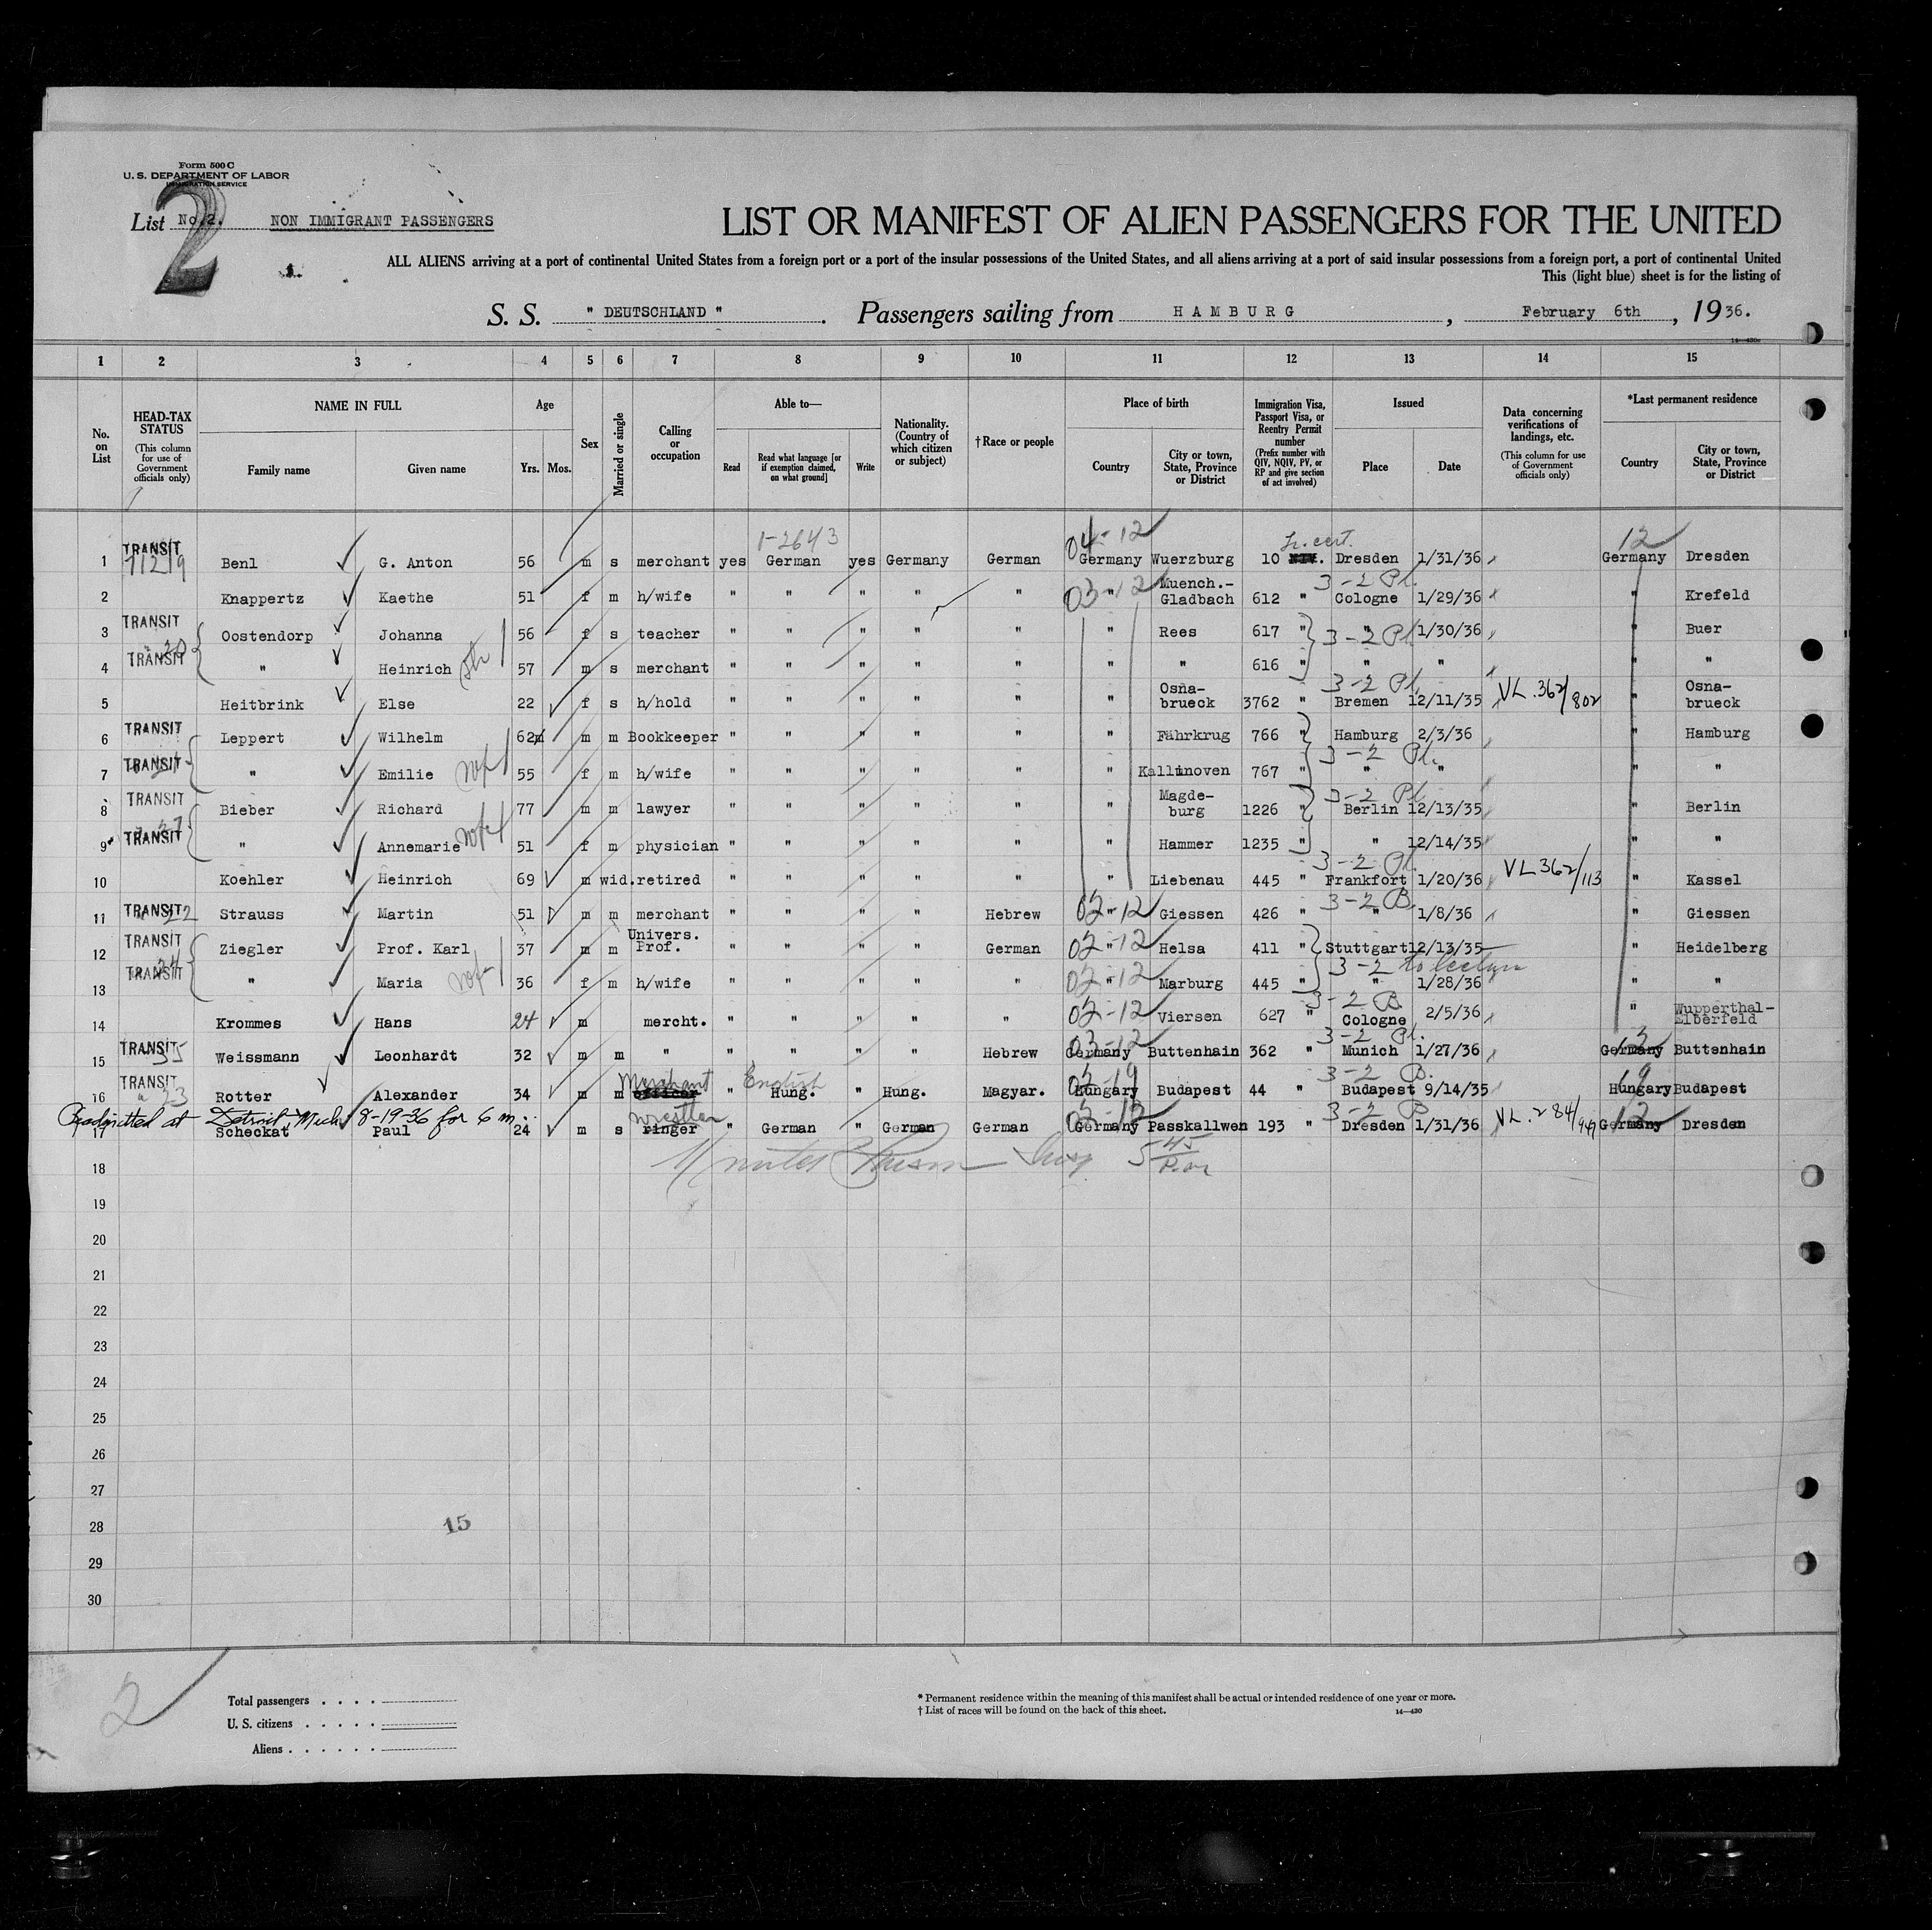 Form 500 C
U. S. DEPARTMENT OF LABOR
IMMIGRATION SERVICE
2
List No.2. NON IMMIGRANT PASSENGERS
LIST OR MANIFEST OF ALIEN PASSENGERS FOR THE UNITED
ALL ALIENS arriving at a port of continental United States from a foreign port or a port of the insular possessions of the United States, and all aliens arriving at a port of said insular possessions from a foreign port, a port of continental United
This (light blue) sheet is for the listing of
S. S. " DEUTSCHLAND ". Passengers sailing from HAMBURG, February 6th, 1936.
1 2 3 4 5 6 7 8 9 10 11 12 13 14 15
No. on List
HEAD-TAX STATUS (This column for use of Government officials only)
NAME IN FULL Family name Given name
Age Yrs. Mos.
Sex
Married or single
Calling or occupation
Able to— Read Read what language [or if exemption claimed, on what ground] Write
Nationality. (Country of which citizen or subject)
†Race or people
Place of birth Country City or town, State, Province or District
Immigration Visa, Passport Visa, or Reentry Permit number (Prefix number with QIV, NQIV, PV, or RP and give section of act involved)
Issued Place Date
Data concerning verifications of landings, etc. (This column for use of Government officials only)
*Last permanent residence Country City or town, State, Province or District
1-2643 04-12 12
1 TRANSIT Benl G. Anton 56 m s merchant yes German yes Germany German Germany Wuerzburg 10 Dresden 1/31/36 Germany Dresden
03-12 3-2 Pl.
2 Knappertz Kaethe 51 f m h/wife " " " " " " Muench.-Gladbach 612 " Cologne 1/29/36 " Krefeld
3 TRANSIT Oostendorp Johanna 56 f s teacher " " " " " " Rees 617 " " 1/30/36 " Buer
3-2 Pl
4 TRANSIT " Heinrich 57 m s merchant " " " " " " " 616 " " " " "
3-2 Pl.
5 Heitbrink Else 22 f s h/hold " " " " " " Osna-brueck 3762 " Bremen 12/11/35 VL.362/802 " Osna-brueck
6 TRANSIT Leppert Wilhelm 62 m m Bookkeeper " " " " " " Fährkrug 766 " Hamburg 2/3/36 " Hamburg
3-2 Pl.
7 TRANSIT " Emilie 55 f m h/wife " " " " " " Kallinoven 767 " " " " "
3-2 Pl
8 TRANSIT Bieber Richard 77 m m lawyer " " " " " " Magde-burg 1226 " Berlin 12/13/35 " Berlin
9 TRANSIT " Annemarie 51 f m physician " " " " " " Hammer 1235 " " 12/14/35 " "
3-2 Pl.
10 Koehler Heinrich 69 m wid. retired " " " " " " Liebenau 445 " Frankfort 1/20/36 VL362/113 " Kassel
3-2 B.
11 TRANSIT 22 Strauss Martin 51 m m merchant " " " " Hebrew 02-12 " Giessen 426 " " 1/8/36 " Giessen
12 TRANSIT Ziegler Prof. Karl 37 m m Univers. Prof. " " " " German 02-12 " Helsa 411 " Stuttgart 12/13/35 " Heidelberg
3-2 to lecture
13 TRANSIT " Maria 36 f m h/wife " " " " " 02-12 " Marburg 445 " " 1/28/36 " "
3-2 B
14 Krommes Hans 24 m mercht. " " " " " 02-12 " Viersen 627 " Cologne 2/5/36 " Wupperthal-Elberfeld
3-2 Pl.
15 TRANSIT Weissmann Leonhardt 32 m m " " " " " Hebrew 03-12 Germany Buttenhain 362 " Munich 1/27/36 Germany Buttenhain
Merchant English 3-2 B.
16 TRANSIT 23 Rotter Alexander 34 m m officer " Hung. " Hung. Magyar. Hungary Budapest 44 " Budapest 9/14/35 19 Hungary Budapest
Readmitted at Detroit, Mich 8-19-36 for 6 m. Wrestler 02-12 3-2 B
17 Scheckat Paul 24 m s ringer " German " German German Germany Passkallwen 193 " Dresden 1/31/36 VL.284/947 12 Germany Dresden
18
19
20
21
22
23
24
25
26
27
28 15
29
30
2
Total passengers
U. S. citizens
Aliens
* Permanent residence within the meaning of this manifest shall be actual or intended residence of one year or more.
† List of races will be found on the back of this sheet. 14—430